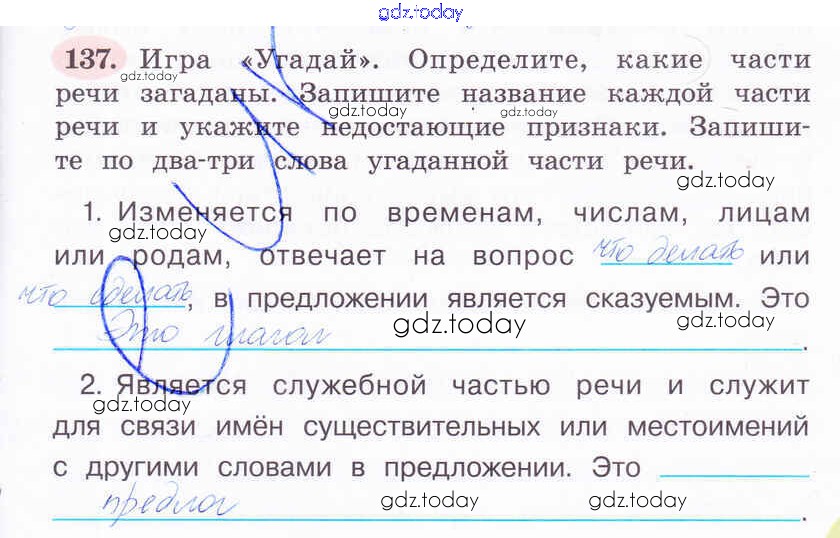 gdz.today
137. Игра «Угадай». Определите, какие части
gdz.today
речи загаданы. Запишите название каждой части
gdz.today gdz.today
речи и укажите недостающие признаки. Запиши-
те по два-три слова угаданной части речи.
gdz.today
1. Изменяется по временам, числам, лицам
gdz.today
или родам, отвечает на вопрос что делать или
что сделать, в предложении является сказуемым. Это
Это глагол.
gdz.today gdz.today
2. Является служебной частью речи и служит
gdz.today
для связи имён существительных или местоимений
с другими словами в предложении. Это
предлог.
gdz.today gdz.today